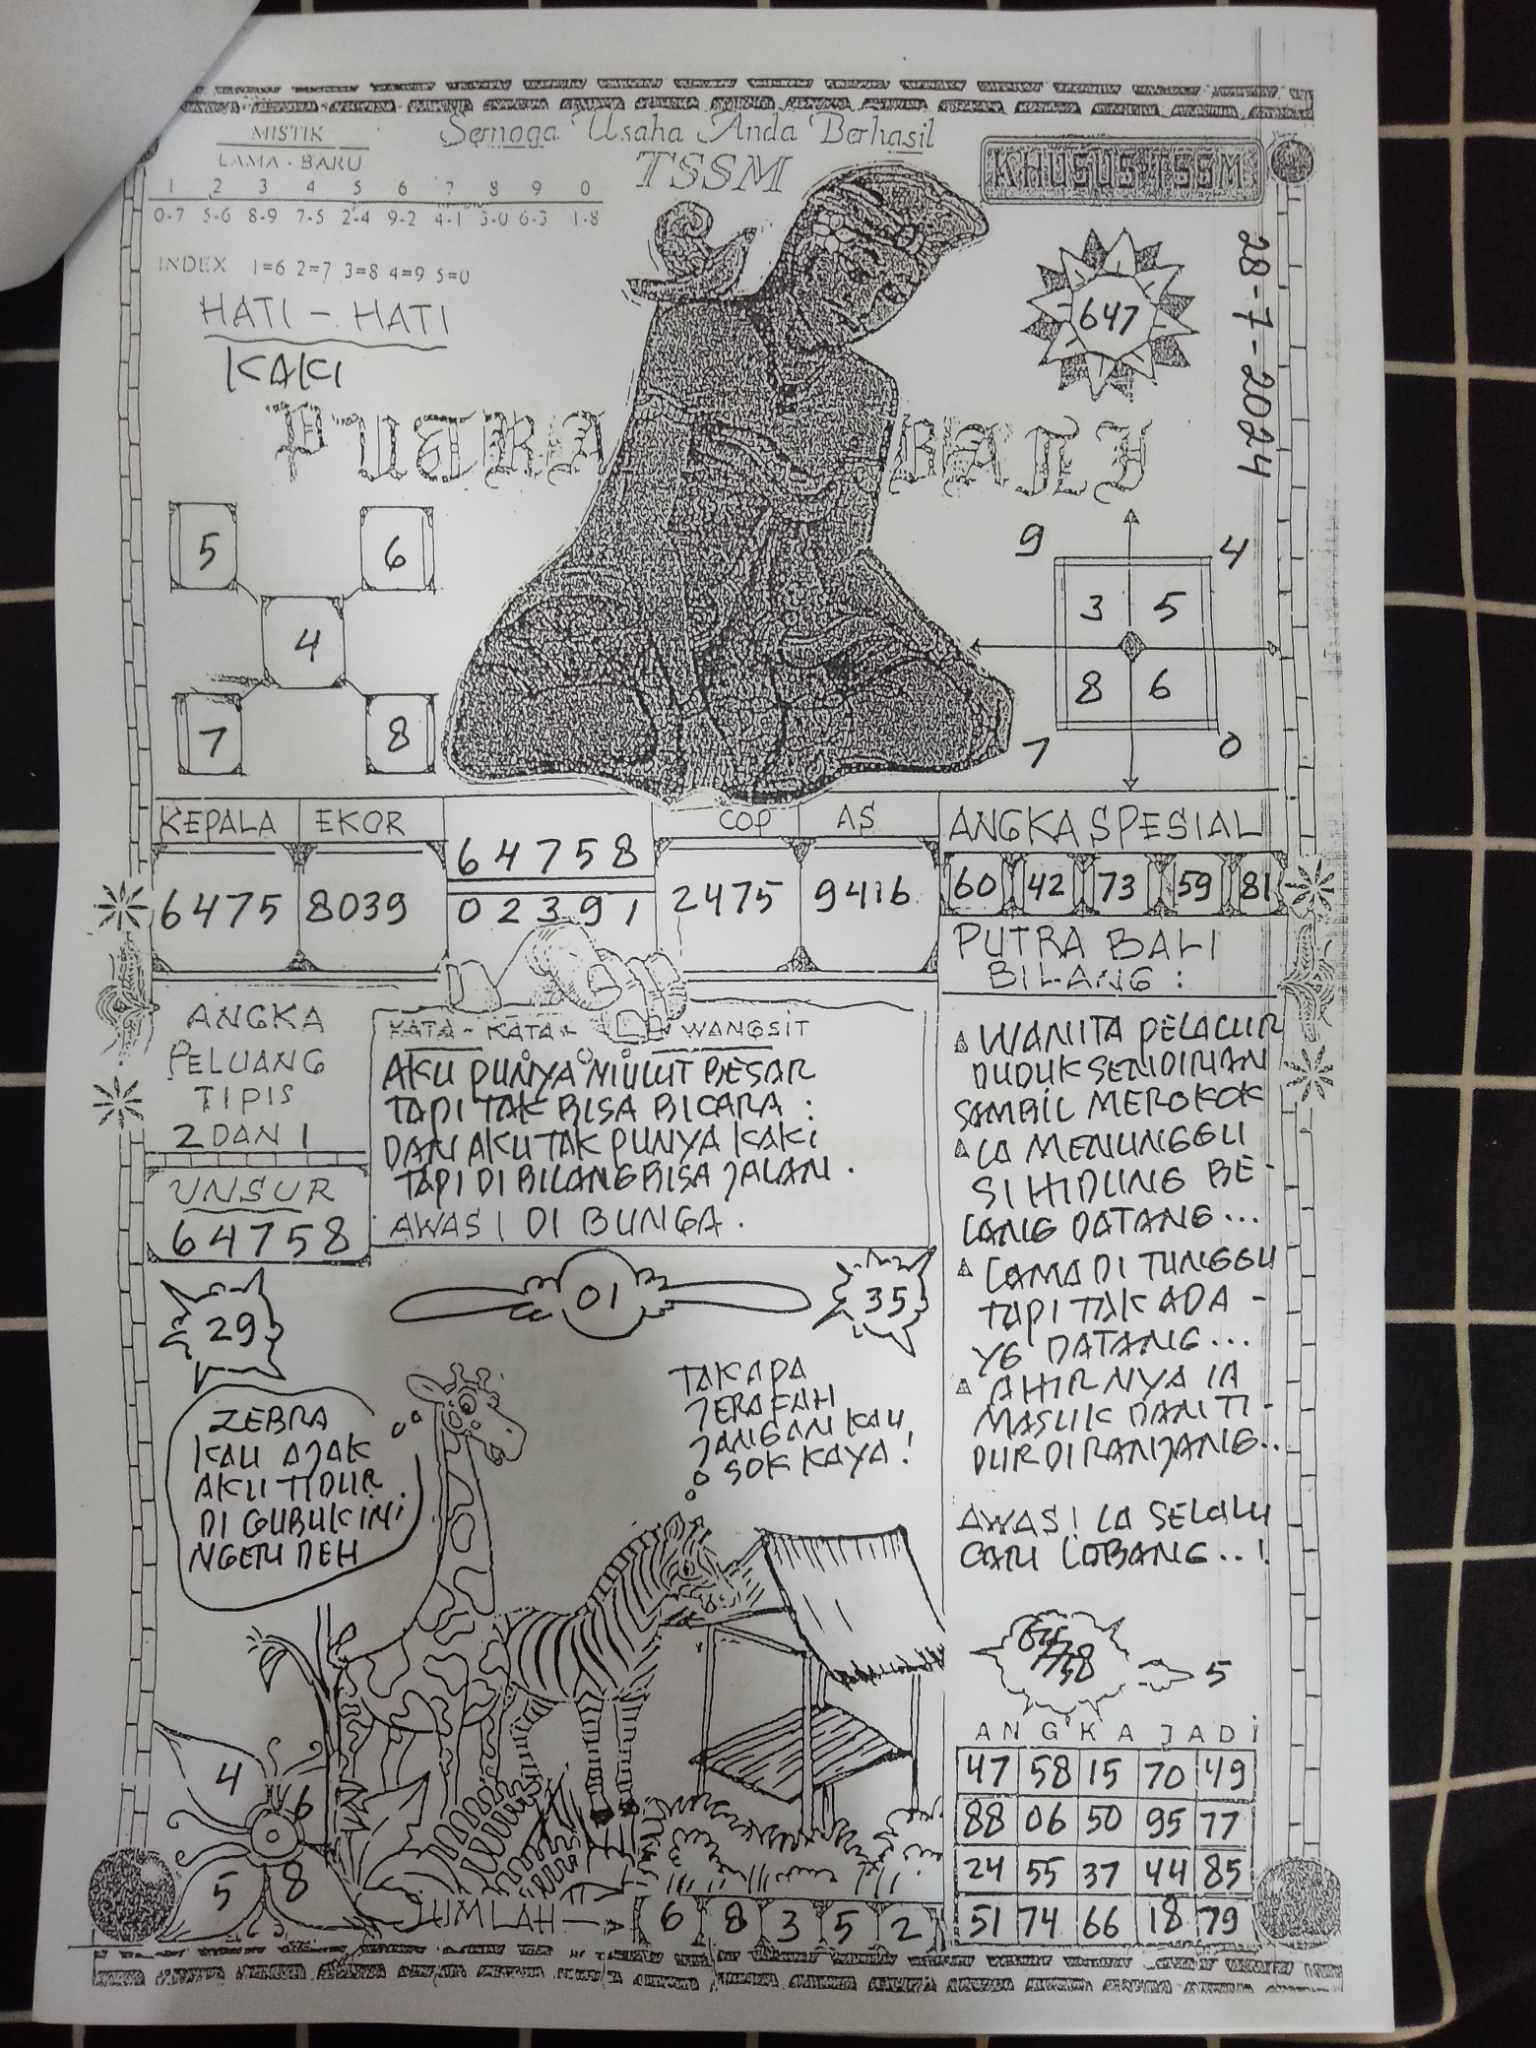 MISTIK
LAMA - BARU
1 2 3 4 5 6 7 8 9 0
0-7 5-6 8-9 7-5 2-4 9-2 4-1 3-0 6-3 1-8
INDEX 1=6 2=7 3=8 4=9 5=0
Semoga Usaha Anda Berhasil
TSSM
KHUSUS TSSM
28-7-2024
647
HATI - HATI
KAKI
PUTRA BALI
5 6
4
7 8
9 4
3 5
8 6
7 0
KEPALA EKOR
6475 8039
64758
02391
COP AS
2475 9416
ANGKA SPESIAL
60 42 73 59 81
ANGKA
PELUANG
TIPIS
2 DAN 1
UNSUR
64758
KATA - KATA - WANGSIT
AKU PUNYA MULUT BESAR
TAPI TAK BISA BICARA :
DAN AKU TAK PUNYA KAKI
TAPI DI BILANG BISA JALAN .
AWAS ! DI BUNGA .
PUTRA BALI
BILANG :
WANITA PELACUR
DUDUK SENDIRIAN
SAMBIL MEROKOK
IA MENUNGGU
SI HIDUNG BE-
LANG DATANG ...
LAMA DI TUNGGU
TAPI TAK ADA -
YG DATANG ...
AHIRNYA IA
MASUK DAN TI-
DUR DI RANJANG..
AWAS ! IA SELALU
CARI LOBANG..!
29
01
35
ZEBRA
KAU AJAK
AKU TIDUR
DI GUBUK INI
NGERI DEH
TAK APA
JERAFAH
JANGAN KAU
SOK KAYA !
5
4 6
5 8
JUMLAH
6 8 3 5 2
ANGKA JADI
47 58 15 70 49
88 06 50 95 77
24 55 37 44 85
51 74 66 18 79